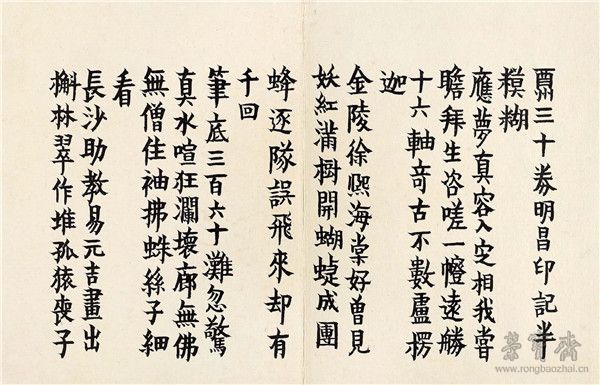 酉州三十券明昌印記半
糢糊
應夢真容入定相我嘗
瞻拜生咨嗟一幢遠勝
十六軸奇古不數盧楞
迦
金陵徐熙海棠好曾見
妖紅滿樹開蝴蜨成團
蜂逐隊誤飛來却有
千回
筆底三百六十灘忽驚
真水喧狂瀾壞廊無佛
無僧住袖拂蛛絲子細
看
長沙助教易元吉畫出
槲林翠作堆孤猿喪子
榮寶齋
www.rongbaozhai.cn